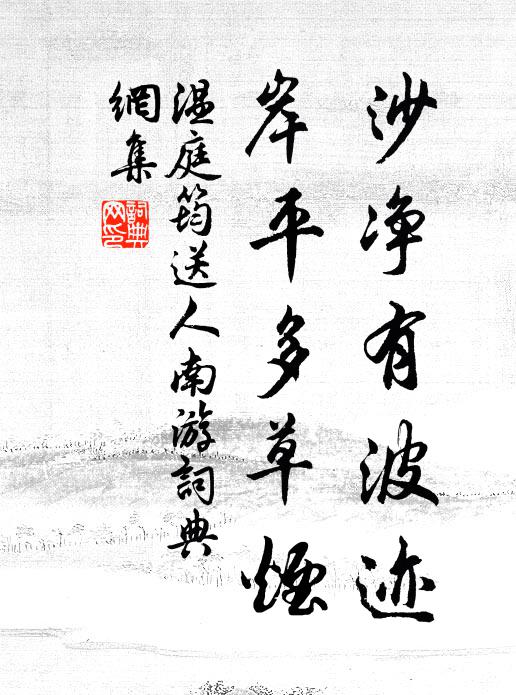 沙净有波迹
岸平多草煙
温庭筠送人南游詞典
網集
詞典網印